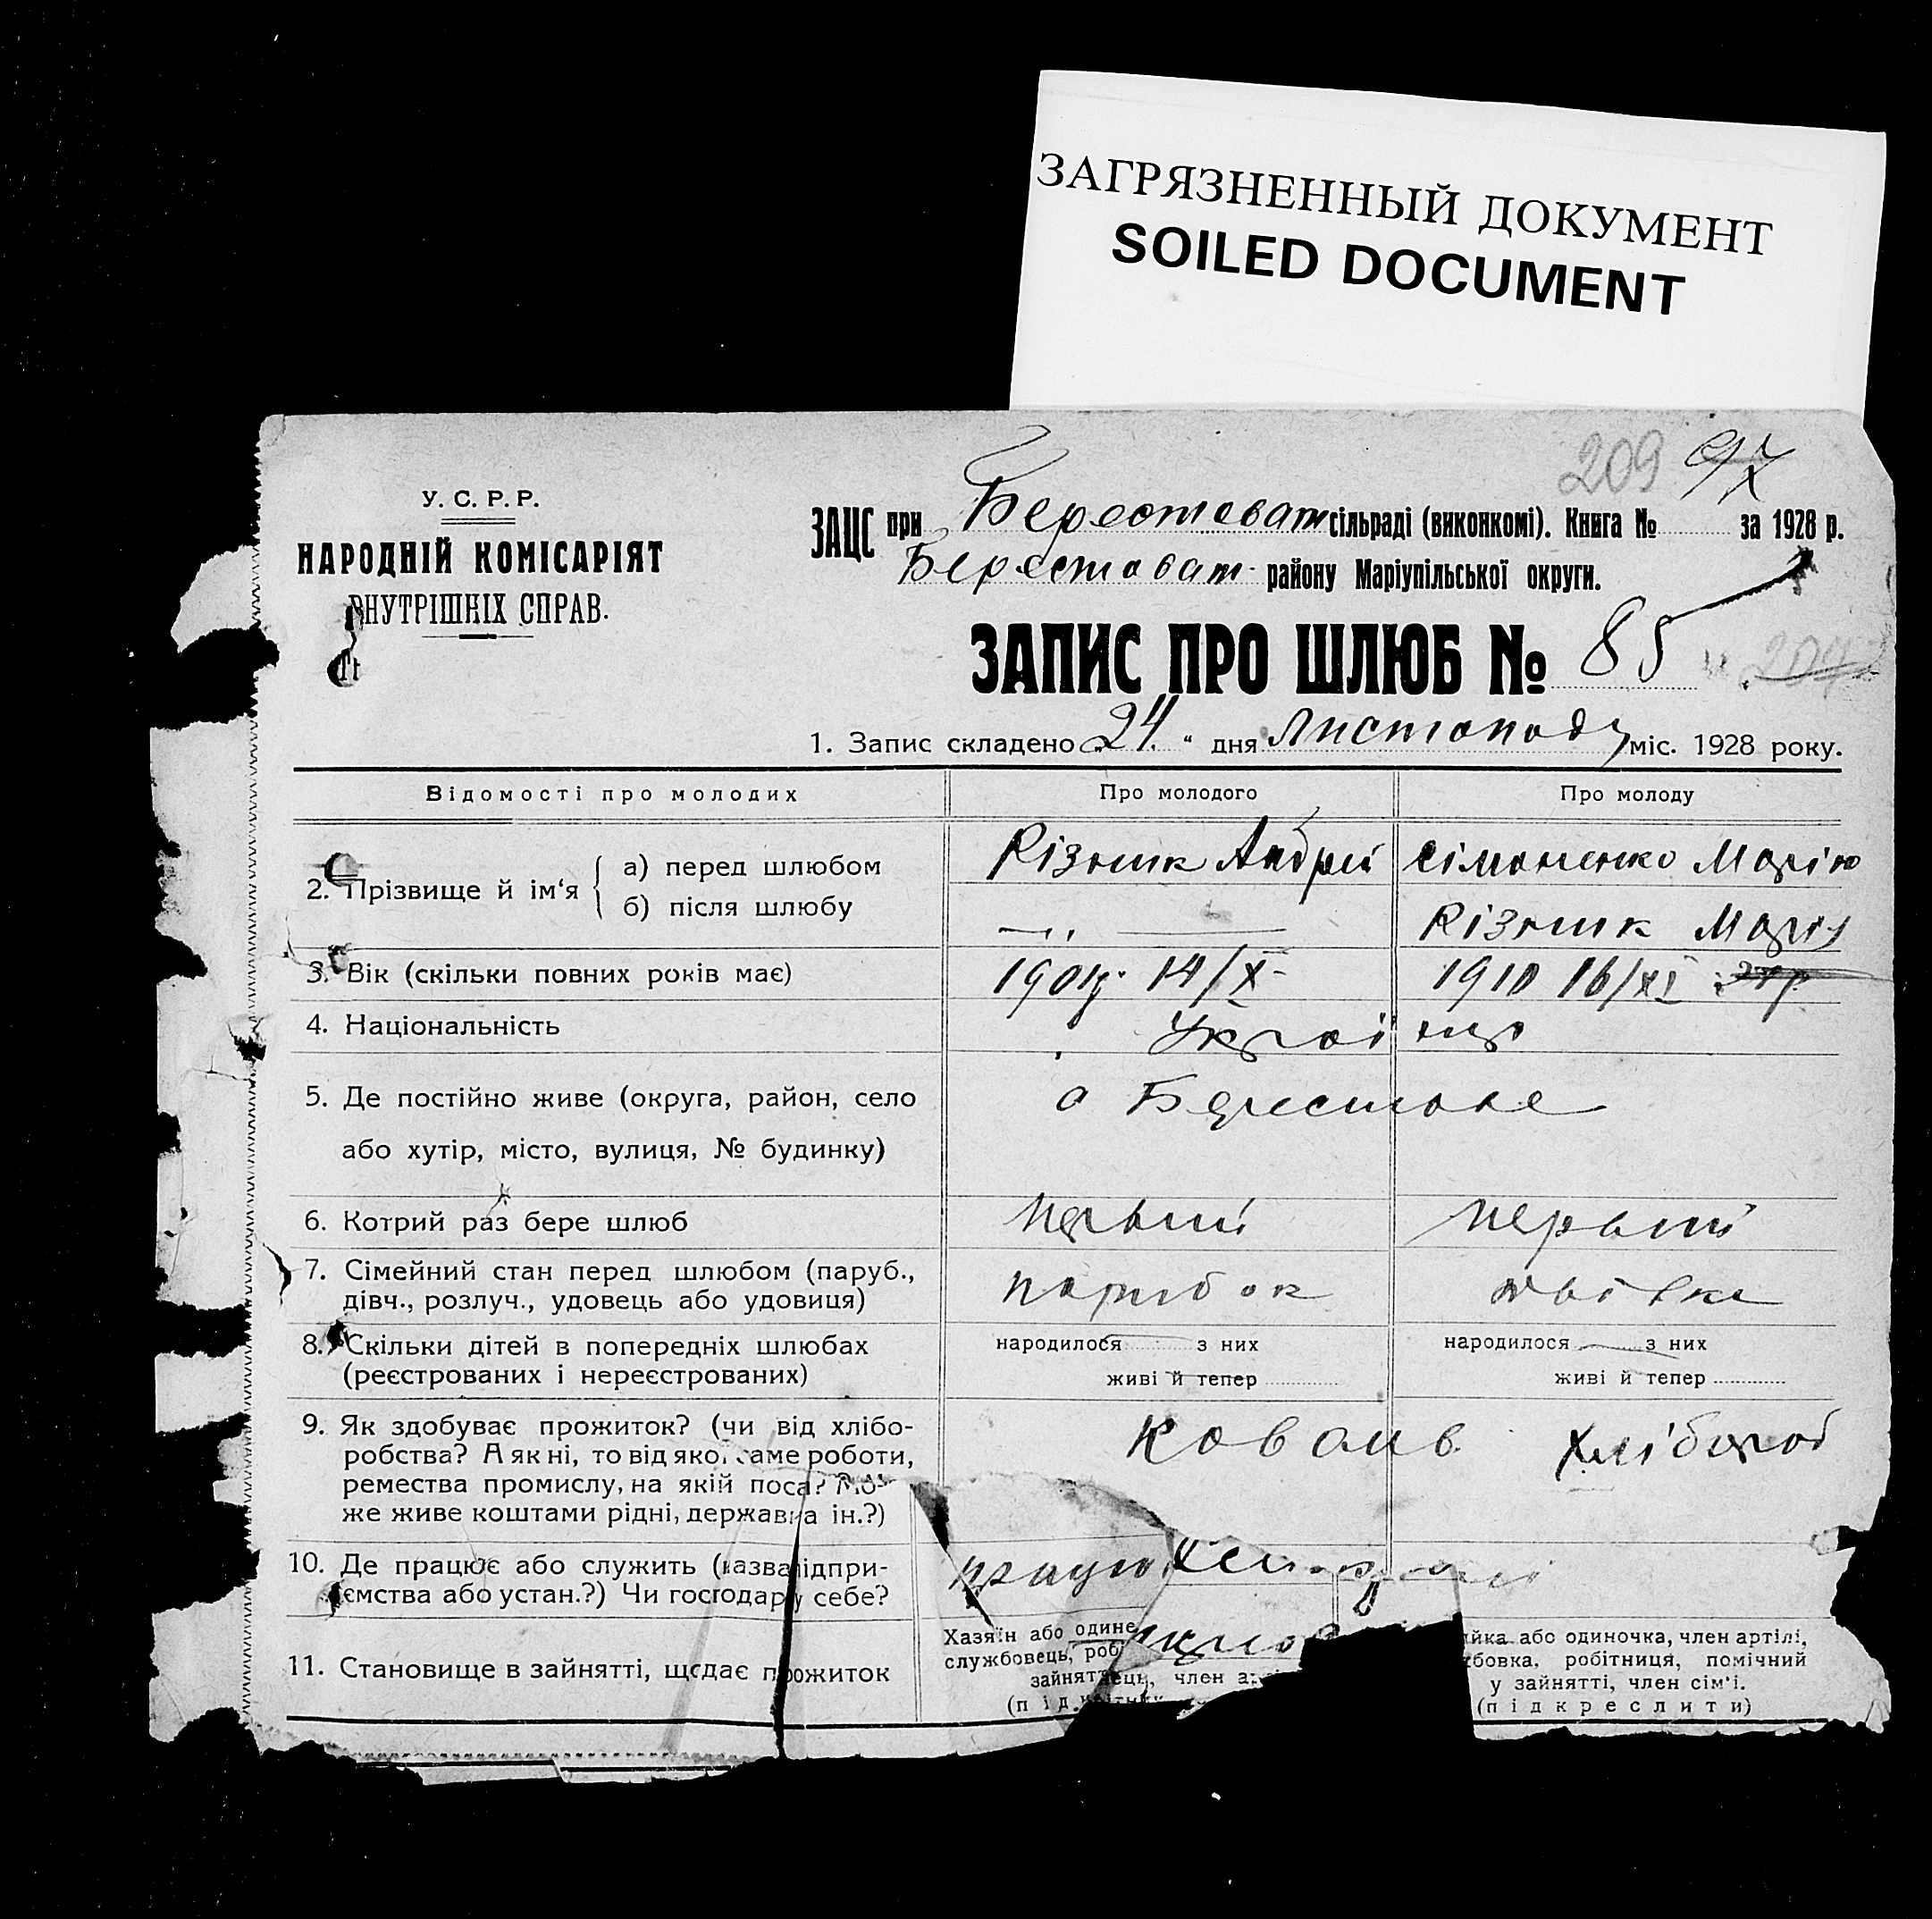 ЗАГРЯЗНЕННЫЙ ДОКУМЕНТ
SOILED DOCUMENT
209 97
У. С. Р. Р.
НАРОДНІЙ КОМІСАРІЯТ
ВНУТРІШНІХ СПРАВ.
ЗАЦС при Берестоват сільраді (виконкомі). Книга № за 1928 р.
Берестоват районy Маріупільської округи.
ЗАПИС ПРО ШЛЮБ № 85
1. Запис складено „24“ дня Листопаду міс. 1928 року.
Відомості про молодих Про молодого Про молоду
2. Прізвище й ім‘я { а) перед шлюбом Різник Андрій Сімоненко Марію
б) після шлюбу —„— Різник Марія
3. Вік (скільки повних років має) 1901р. 14/X- 1910 16/XI
4. Національність Українці
5. Де постійно живе (округа, район, село с Берестове
або хутір, місто, вулиця, № будинку)
6. Котрий раз бере шлюб первий первий
7. Сімейний стан перед шлюбом (паруб., парубок дівка
дівч., розлуч., удовець або удовиця)
8. Скільки дітей в попередніх шлюбах народилося з них народилося з них
(реєстрованих і нереєстрованих) живі й тепер живі й тепер
9. Як здобуває прожиток? (чи від хлібо- Коваль Хлібороб
робства? А як ні, то від якої саме роботи,
ремества промислу, на якій поса?
же живе коштами рідні, державна ін.?)
10. Де працює або служить (назва підпри-
ємства або устан.?) Чи господар у себе?
11. Становище в зайнятті, що дає прожиток
Хазяїн або одине
службовець, роб
зайнятт ець, член а
(під
йка або одиночка, член артілі,
бовка, робітниця, помічний
у зайнятті, член сім‘ї.
(підкреслити)